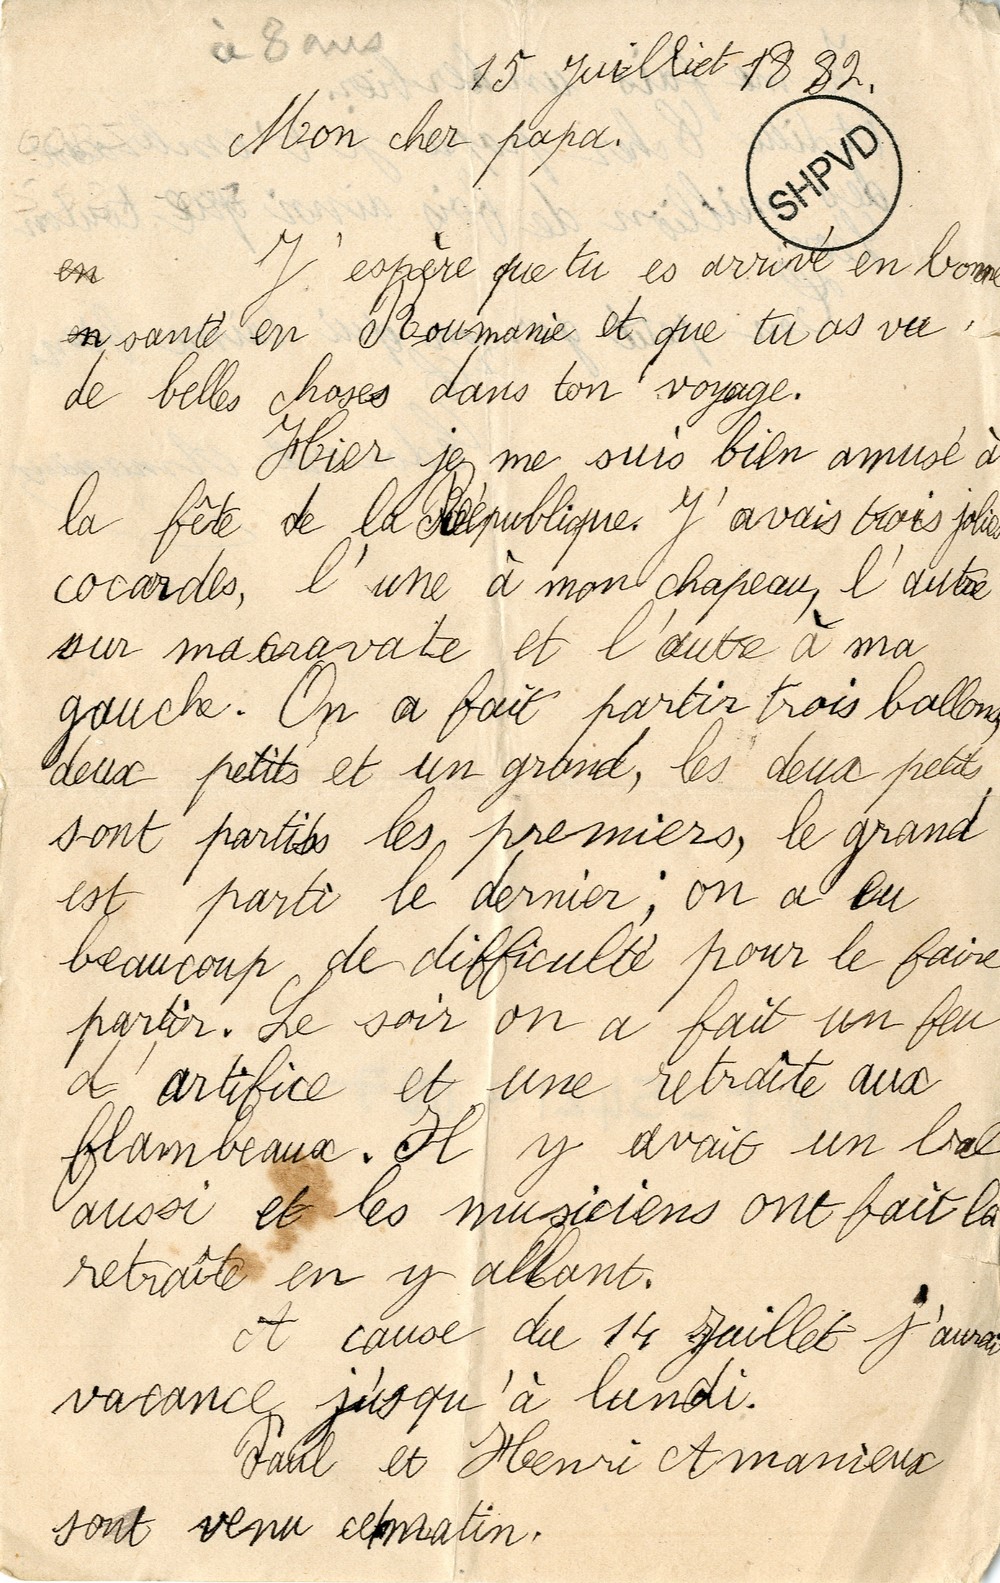 à 8 ans
15 Juilliet 1882.
Mon cher papa.
SHPVD
en J'espère que tu es arrivé en bonne
en santé en Roumanie et que tu as vu
de belles choses dans ton voyage.
Hier je me suis bien amusé à
la fête de la République. J'avais trois jolies
cocardes, l'une à mon chapeau, l'autre
sur ma cravate et l'autre à ma
gauche. On a fait partir trois ballons,
deux petits et un grand, les deux petits
sont partis les premiers, le grand
est parti le dernier; on a eu
beaucoup de difficulté pour le faire
partir. Le soir on a fait un feu
d'artifice et une retraîte aux
flambeaux. Il y avait un bal
aussi et les musiciens ont fait la
retraîte en y allant.
A cause du 14 Juillet j'aurai
vacance jusqu'à lundi.
Paul et Henri Amanieux
sont venu ce matin.